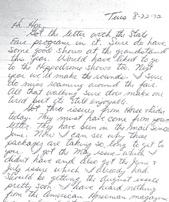 Tues 8-22-72
Hi Hep
Got the letter with the State
Fair program in it. Sure do have
some good shows at the grandstand
this year. Would have liked to go
to the shows too. Next
year we'll make the rounds. I sure
do miss running around the fair.
All that walking sure does make me
tired but it's still enjoyable.
Got three issues of three slides
today. They must have come from your
letter. They have been in the mail since
June. Now I can see why those
packages are taking so long to get to
you. I got the May issue which I
didn't have and also got the June &
July issue which I already had.
Should be getting the August issue
pretty soon. I have heard nothing
from the American magazine